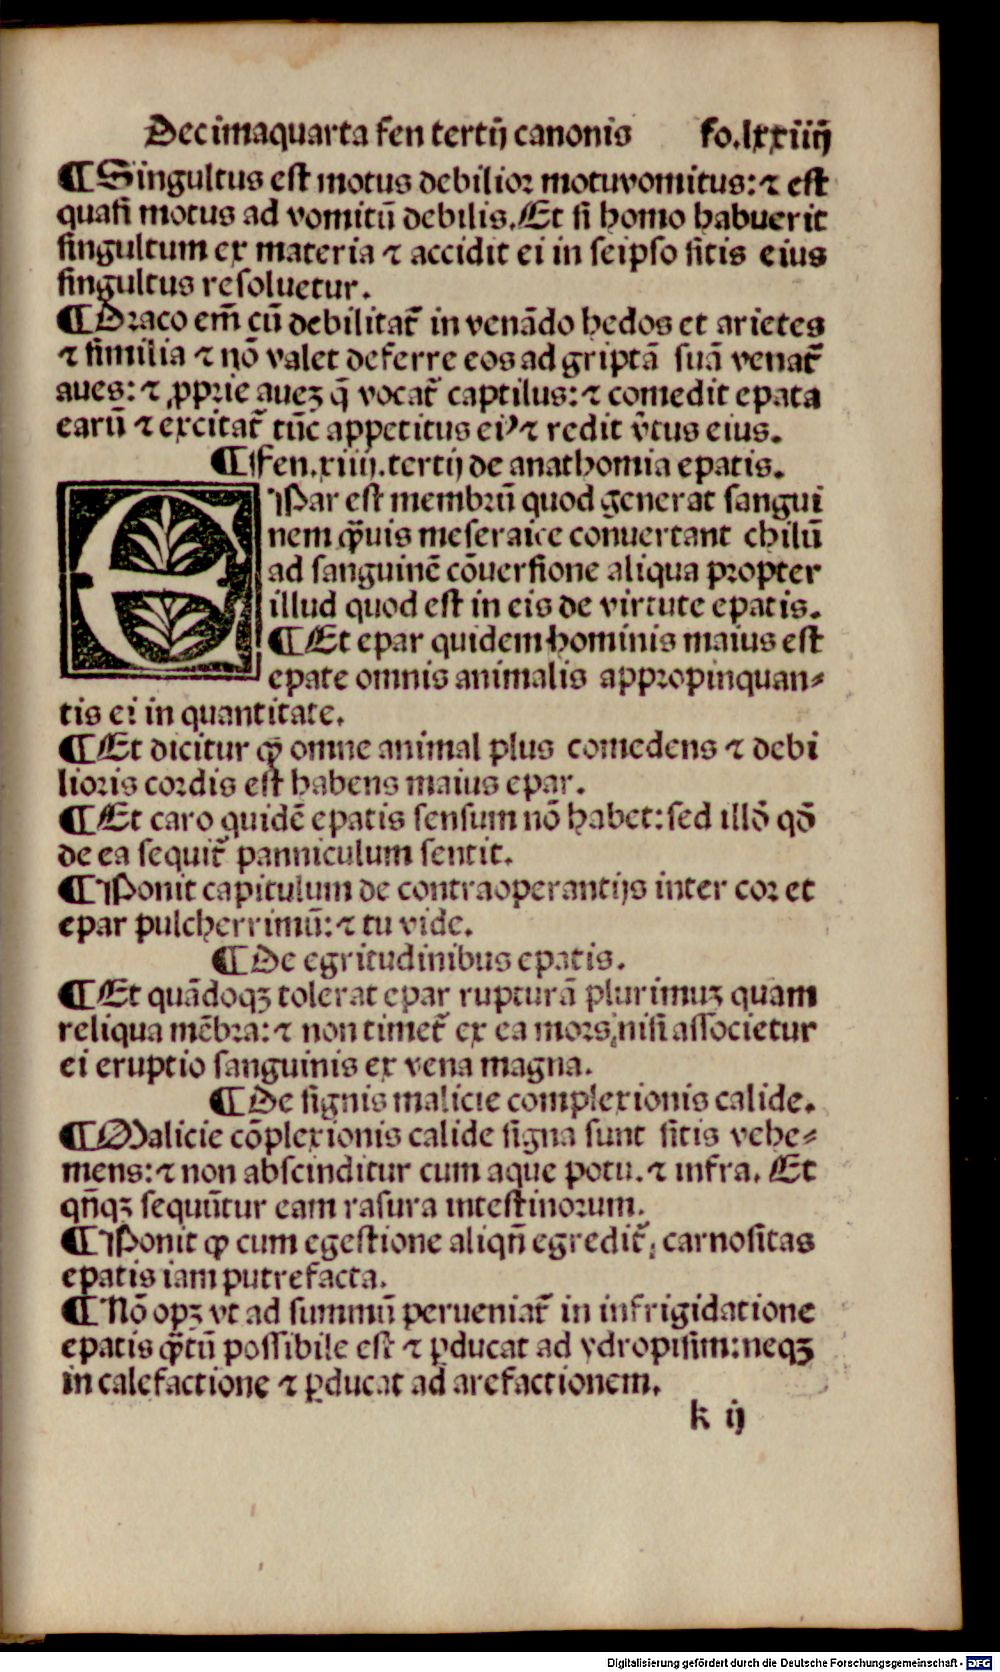 Decimaquarta fen tertij canonis fo.lxxiiij
¶ Singultus est motus debilior motuvomitus: ⁊ est
quasi motus ad vomitū debilis. Et si homo habuerit
singultum ex materia ⁊ accidit ei in seipso sitis eius
singultus resoluetur.
¶ Draco em̄ cū debilitat᷑ in venādo hedos et arietes
⁊ similia ⁊ nō valet deferre eos ad griptā suā venat᷑
aues: ⁊ ꝓprie aueꝫ q̄ vocat᷑ captilus: ⁊ comedit epata
earū ⁊ excitat᷑ tūc appetitus ei⁹ ⁊ redit v̓tus eius.
¶ Fen.xiiij.tertij de anathomia epatis.
EPar est membrū quod generat sangui
nem qͣuis meseraice conuertant chilū
ad sanguinē cōuersione aliqua propter
illud quod est in eis de virtute epatis.
¶ Et epar quidem hominis maius est
epate omnis animalis appropinquan⸗
tis ei in quantitate.
¶ Et dicitur ꝙ omne animal plus comedens ⁊ debi
lioris cordis est habens maius epar.
¶ Et caro quidē epatis sensum nō habet: sed illō qō
de ea sequit᷑ panniculum sentit.
¶ Ponit capitulum de contraoperantijs inter cor et
epar pulcherrimū: ⁊ tu vide.
¶ De egritudinibus epatis.
¶ Et quādoqꝫ tolerat epar rupturā plurimuꝫ quam
reliqua mēbra: ⁊ non timet᷑ ex ea mors, nisi associetur
ei eruptio sanguinis ex vena magna.
¶ De signis malicie complexionis calide.
¶ Malicie cōplexionis calide signa sunt sitis vehe⸗
mens: ⁊ non abscinditur cum aque potu. ⁊ infra. Et
qn̄qꝫ sequūtur eam rasura intestinorum.
¶ Ponit ꝙ cum egestione aliqn̄ egredit᷑, carnositas
epatis iam putrefacta.
¶ Nō opꝫ vt ad summū perueniat᷑ in infrigidatione
epatis qͣtū possibile est ⁊ ꝑducat ad ydropisim: neqꝫ
in calefactione ⁊ ꝑducat ad arefactionem.
k ij
Digitalisierung gefördert durch die Deutsche Forschungsgemeinschaft - DFG